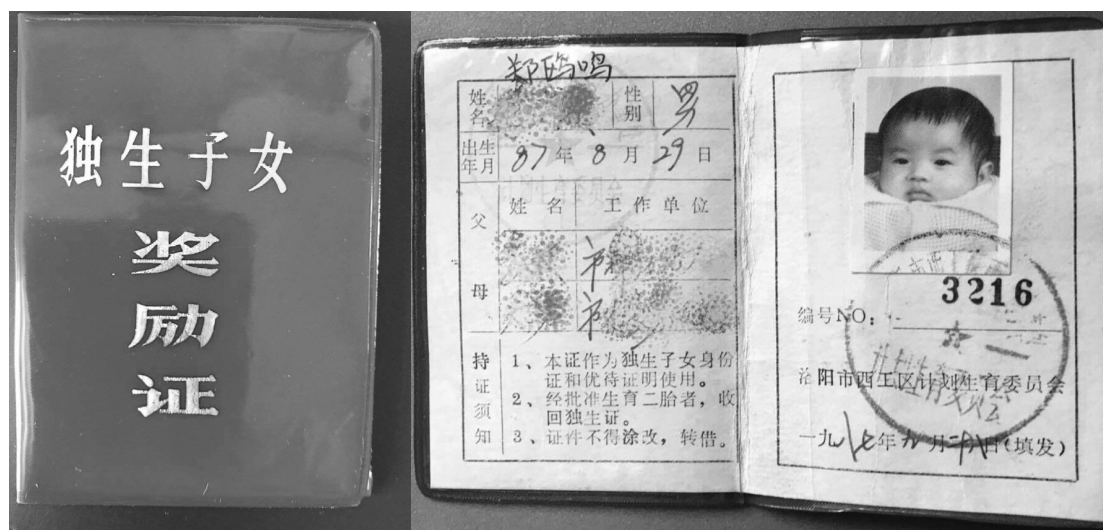 独生子女
奖
励
证
郑鸥鸣
姓名 性别 男
出生年月 87年8月29日
父母 姓名 工作单位
市
市
持证须知
1、本证作为独生子女身份
证和优待证明使用。
2、经批准生育二胎者，收
回独生证。
3、证件不得涂改，转借。
3216
编号NO：
洛阳市西工区计划生育委员会
一九八七年九月二十八日(填发)
计划生育委员会